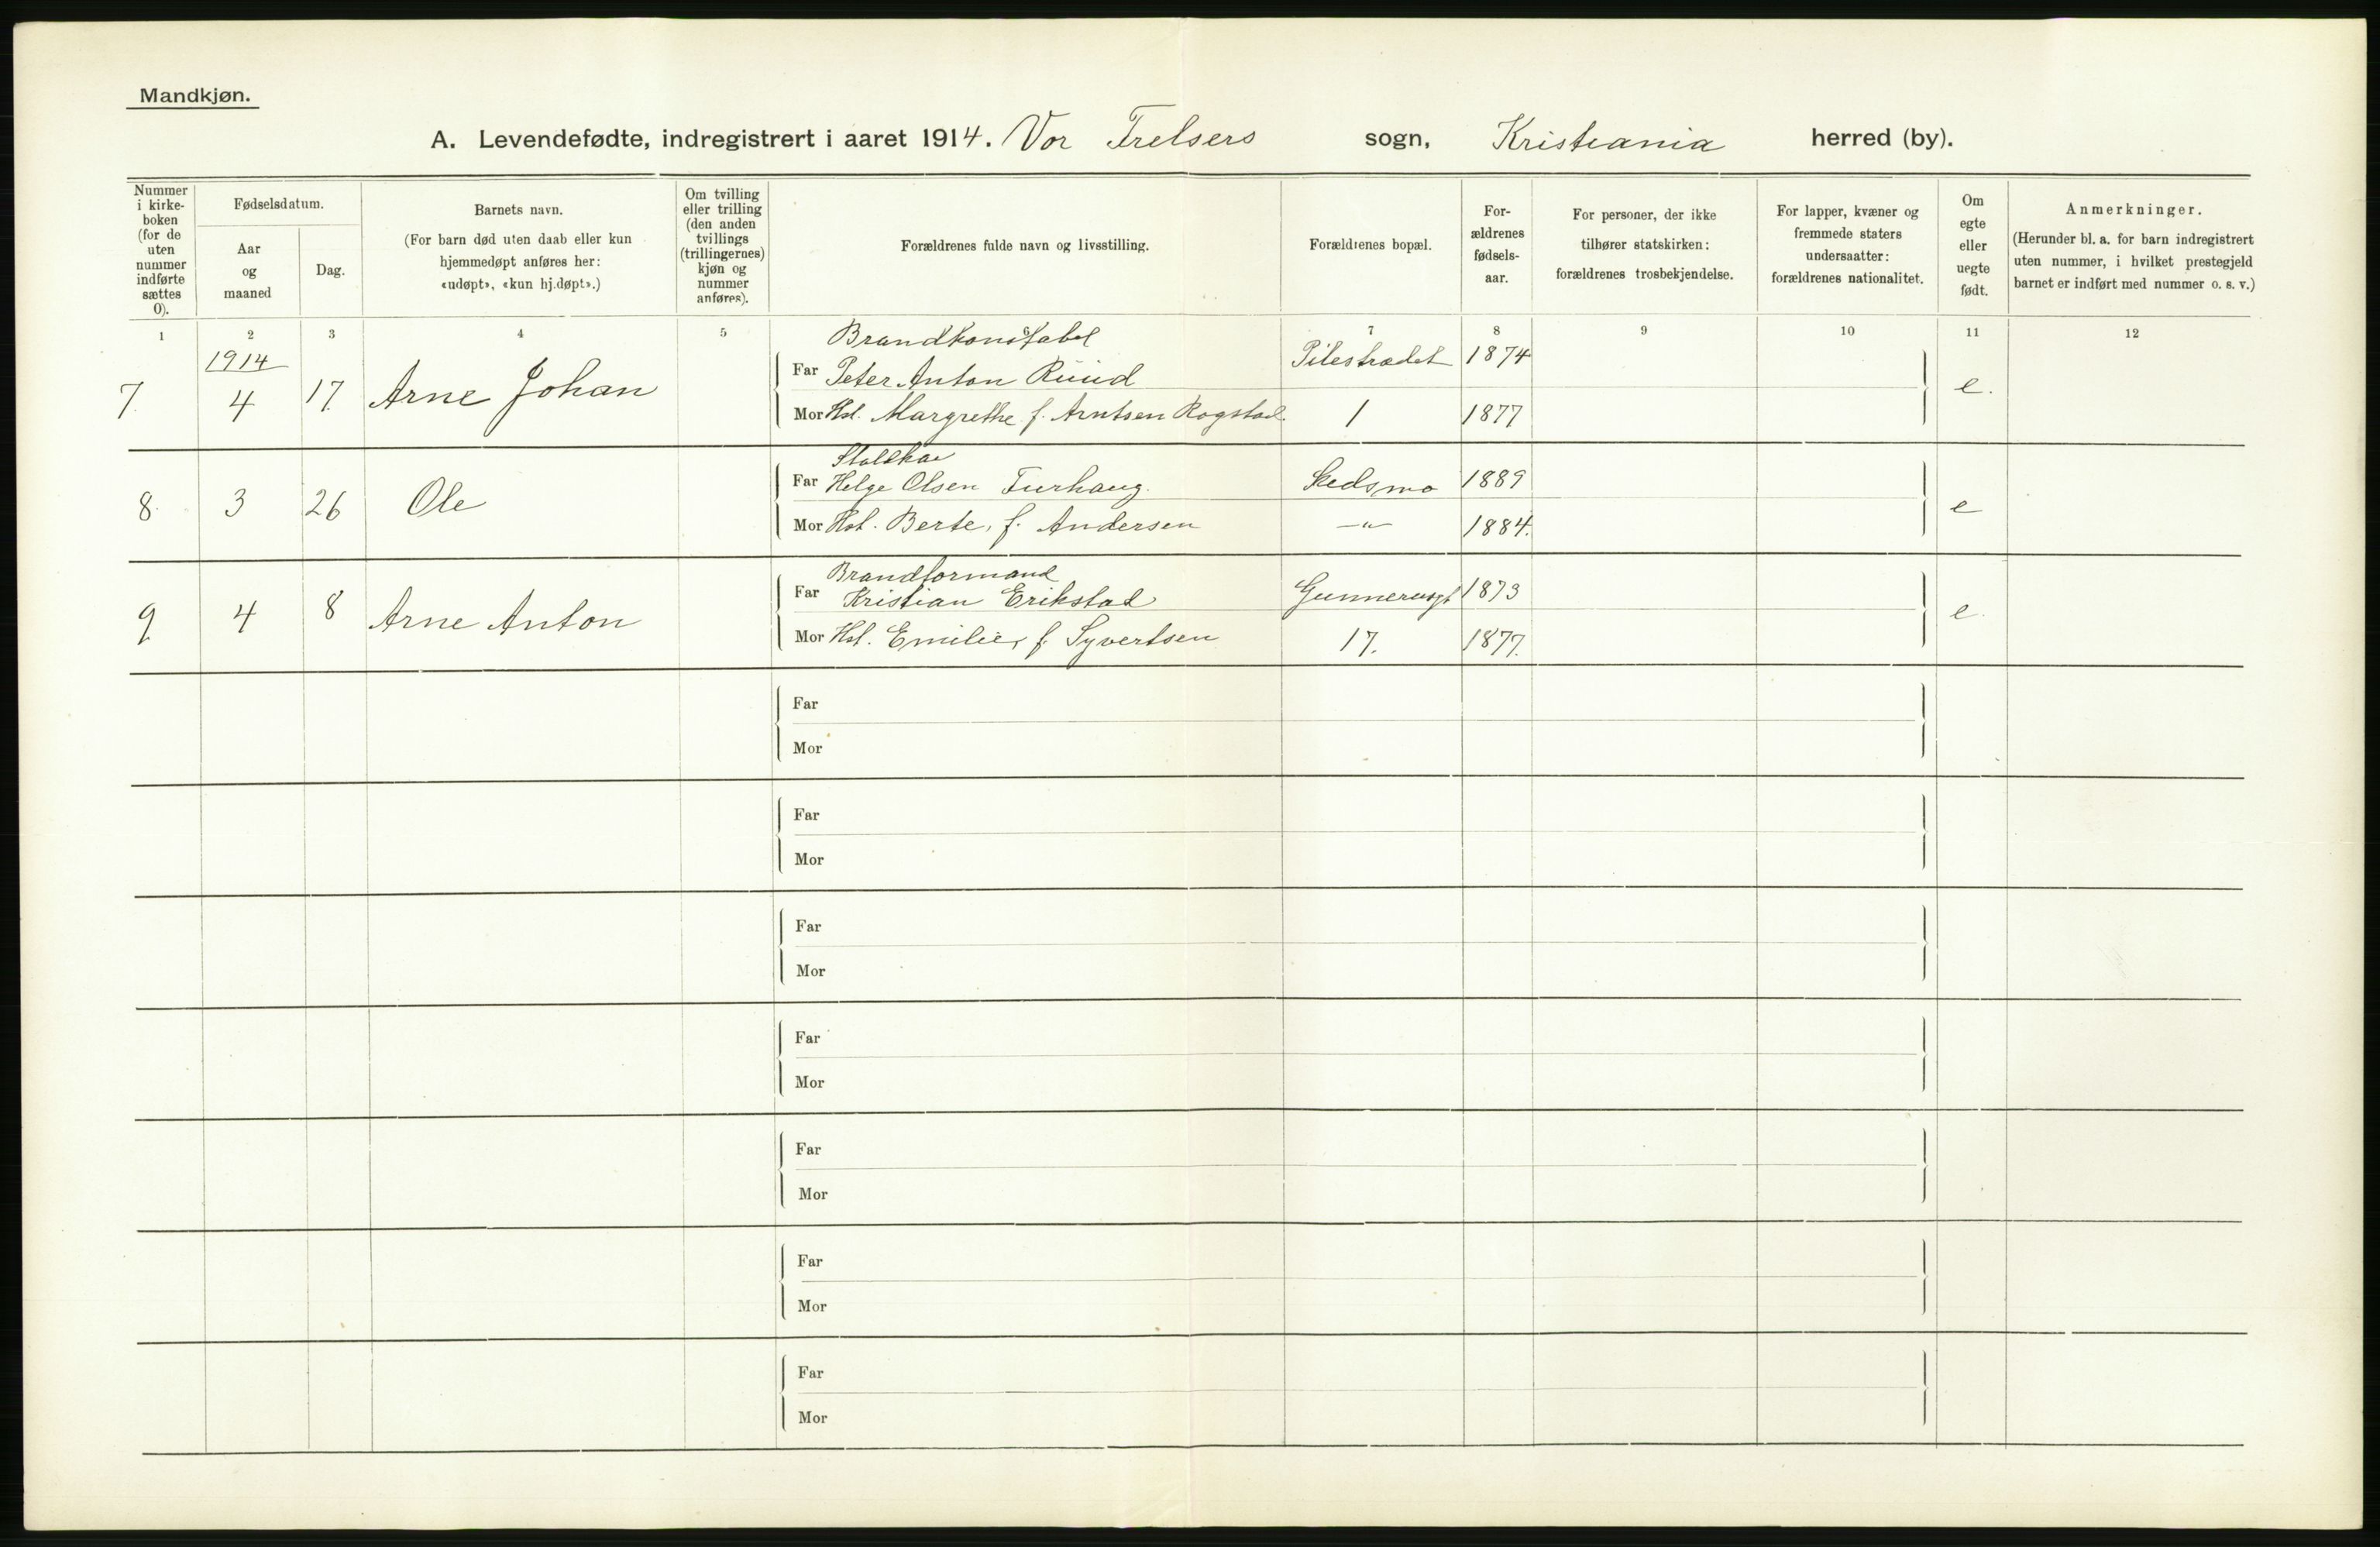 Mandkjøn.
A. Levendefødte, indregistrert i aaret 1914. Vor Frelsers sogn, Kristiania herred (by).
Nummer i kirke-boken (for de uten nummer indførte sættes 0).
Fødselsdatum.
Aar og maaned
Dag.
Barnets navn.
(For barn død uten daab eller kun hjemmedøpt anføres her: «udøpt», «kun hj.døpt».)
Om tvilling eller trilling (den anden tvillings (trillingernes) kjøn og nummer anføres).
Forældrenes fulde navn og livsstilling.
Forældrenes bopæl.
For-ældrenes fødsels-aar.
For personer, der ikke tilhører statskirken: forældrenes trosbekjendelse.
For lapper, kvæner og fremmede staters undersaatter: forældrenes nationalitet.
Om egte eller uegte født.
Anmerkninger.
(Herunder bl. a. for barn indregistrert uten nummer, i hvilket prestegjeld barnet er indført med nummer o. s. v.)
1 2 3 4 5 6 7 8 9 10 11 12
1914
Brandkonstabel
7. 4 17. Arne Johan Far Peter Anton Ruud Pilestrædet 1874 e.
Mor Hst. Margrethe f. Arntsen Rogstad. 1 1877
8. 3 26 Ole Far Helge Olsen Furhaug. Skedsmo 1889 e
Mor Hst. Berte, f. Andersen —„— 1884.
Brandformand
9 4 8 Arne Anton Far Kristian Erikstad Gunnerusgt 1873 e.
Mor Hst. Emilie, f. Syvertsen 17. 1877.
Far
Mor
Far
Mor
Far
Mor
Far
Mor
Far
Mor
Far
Mor
Far
Mor